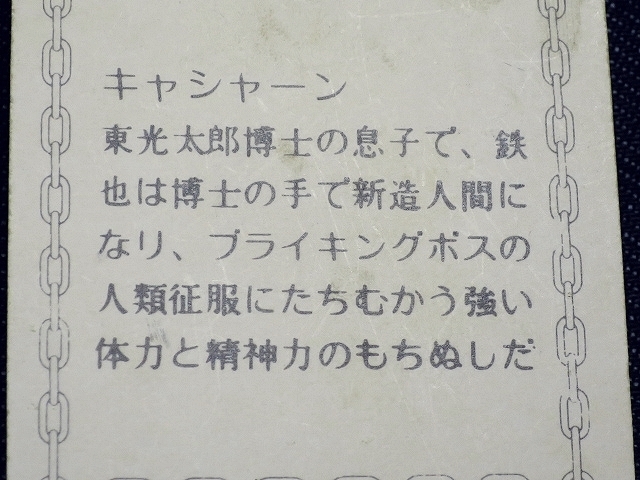 キャシャーン
東光太郎博士の息子で、鉄
也は博士の手で新造人間に
なり、ブライキングボスの
人類征服にたちむかう強い
体力と精神力のもちぬしだ